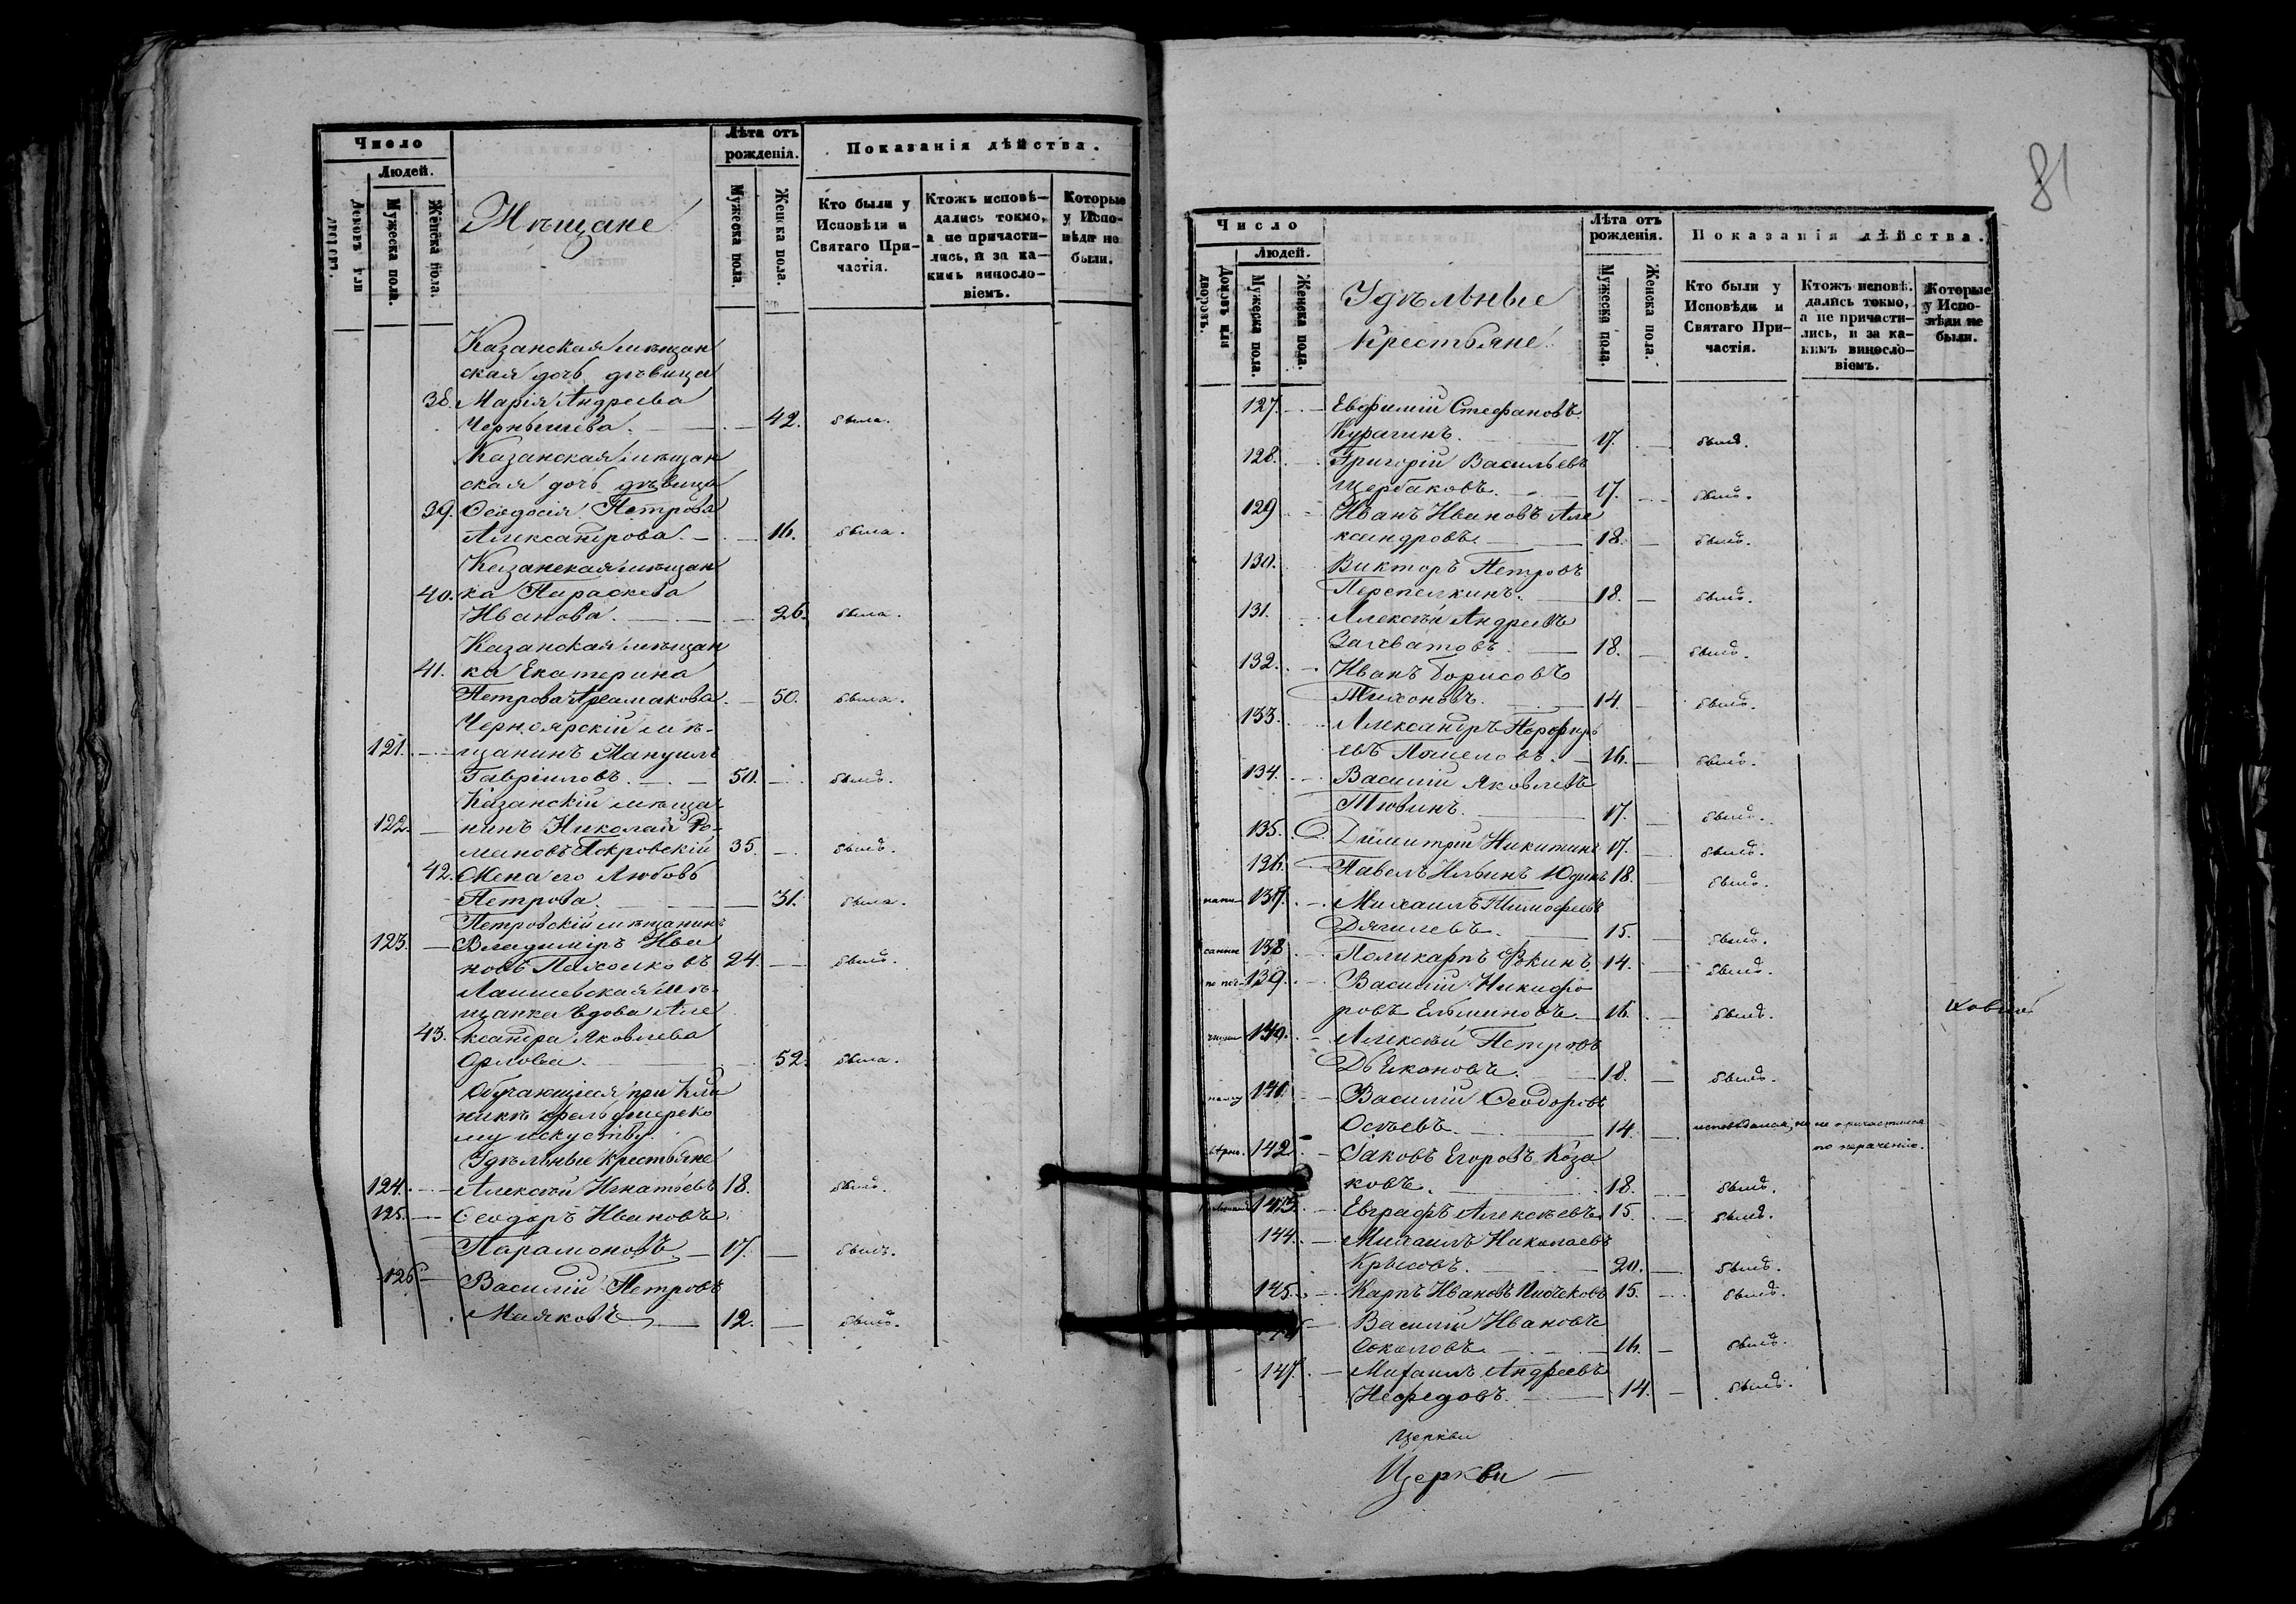 Число
Людей.
Домовъ или дворовъ.
Мужеска пола.
Женска пола.
Мѣщане
Лѣта отъ рожденія.
Мужеска пола.
Женска пола.
Показанія дѣйства.
Кто были у Исповѣди и Святаго Причастія.
Ктожъ исповѣдались токмо, а не причастились, и за какимъ винословіемъ.
Которые у Исповѣди не были.
Казанская мѣщан
ская дочь дѣвица
38. Марія Андреева
Чернышева. 42. была.
Казанская мѣщан
ская дочь дѣвица
39. Ѳеодосія Петрова
Александрова. 16. была.
Казанская мѣщан
40. ка Параскева
Иванова. 26. была.
Казанская мѣщан
41. ка Екатерина
Петрова 50. была.
Черноярскій мѣ-
121. щанинъ Мануилъ
Гавріиловъ. 50. былъ.
Казанскій мѣща
122. нинъ Николай Ро-
мановъ Покровскій 35. былъ.
42. Жена его Любовь
Петрова. 31. была.
Петровскій мѣщанинъ
123. Владиміръ Ива
новъ 24. былъ.
Лаишевская мѣ-
щанка вдова Але
43. ксандра Яковлева
Орлова. 52. была.
Обучающіеся при Кли
никѣ фельдшерско
му искуству.
Удѣльные крестьяне
124. Алексѣй Игнатьевъ 18. былъ.
125. Ѳеодоръ Ивановъ
Парамоновъ 17. былъ.
126. Василій Петровъ
Маяковъ 12. былъ.
81
Число
Людей.
Домовъ или дворовъ.
Мужеска пола.
Женска пола.
Удѣльные
Крестьяне.
Лѣта отъ рожденія.
Мужеска пола.
Женска пола.
Показанія дѣйства.
Кто были у Исповѣди и Святаго Причастія.
Ктожъ исповѣдались токмо, а не причастились, и за какимъ винословіемъ.
Которые у Исповѣди не были.
127. Евфимій Стефановъ
Курагинъ. 17. былъ.
128. Григорій Васильевъ
Щербаковъ. 17. былъ.
129 Иванъ Ивановъ Але
ксандровъ 18. былъ.
130. Викторъ Петровъ
Перепелкинъ. 18. былъ.
131. Алексѣй Андреевъ
Захватовъ. 18. былъ.
132. Иванъ Борисовъ
Тихоновъ. 14. былъ.
133. Александръ Порфирь
евъ 16. былъ.
134. Василій Яковлевъ
Тювинъ. 17. былъ.
135. Димитрій Никитинъ 17. былъ.
136. Павелъ Ильинъ Юдинъ 18. былъ.
137. Михаилъ Тимофеевъ
Дягилевъ. 15. былъ.
138 Поликарпъ Ѳокинъ 14. былъ.
по 139. Василій Никифо
ровъ 16. былъ.
140. Алексѣй Петровъ
Дьяконовъ. 18. былъ.
141. Василій Ѳеодоровъ
14. исповѣдался, но не причастился
по нераченію.
142 Іаковъ Егоровъ Коза
ковъ. 18. былъ.
143. Евграфъ Алексѣевъ 15. былъ.
144. Михаилъ Николаевъ
Крысовъ. 20. былъ.
145. Карпъ Ивановъ 15. былъ.
Василій Ивановъ
Соколовъ. 16. былъ.
147. Михаилъ Андреевъ
Нефедовъ. 14. былъ.
Церкви
Церкви